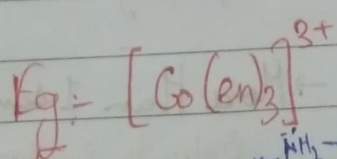 Eg:- [Co(en)₃]³⁺
NH₂-